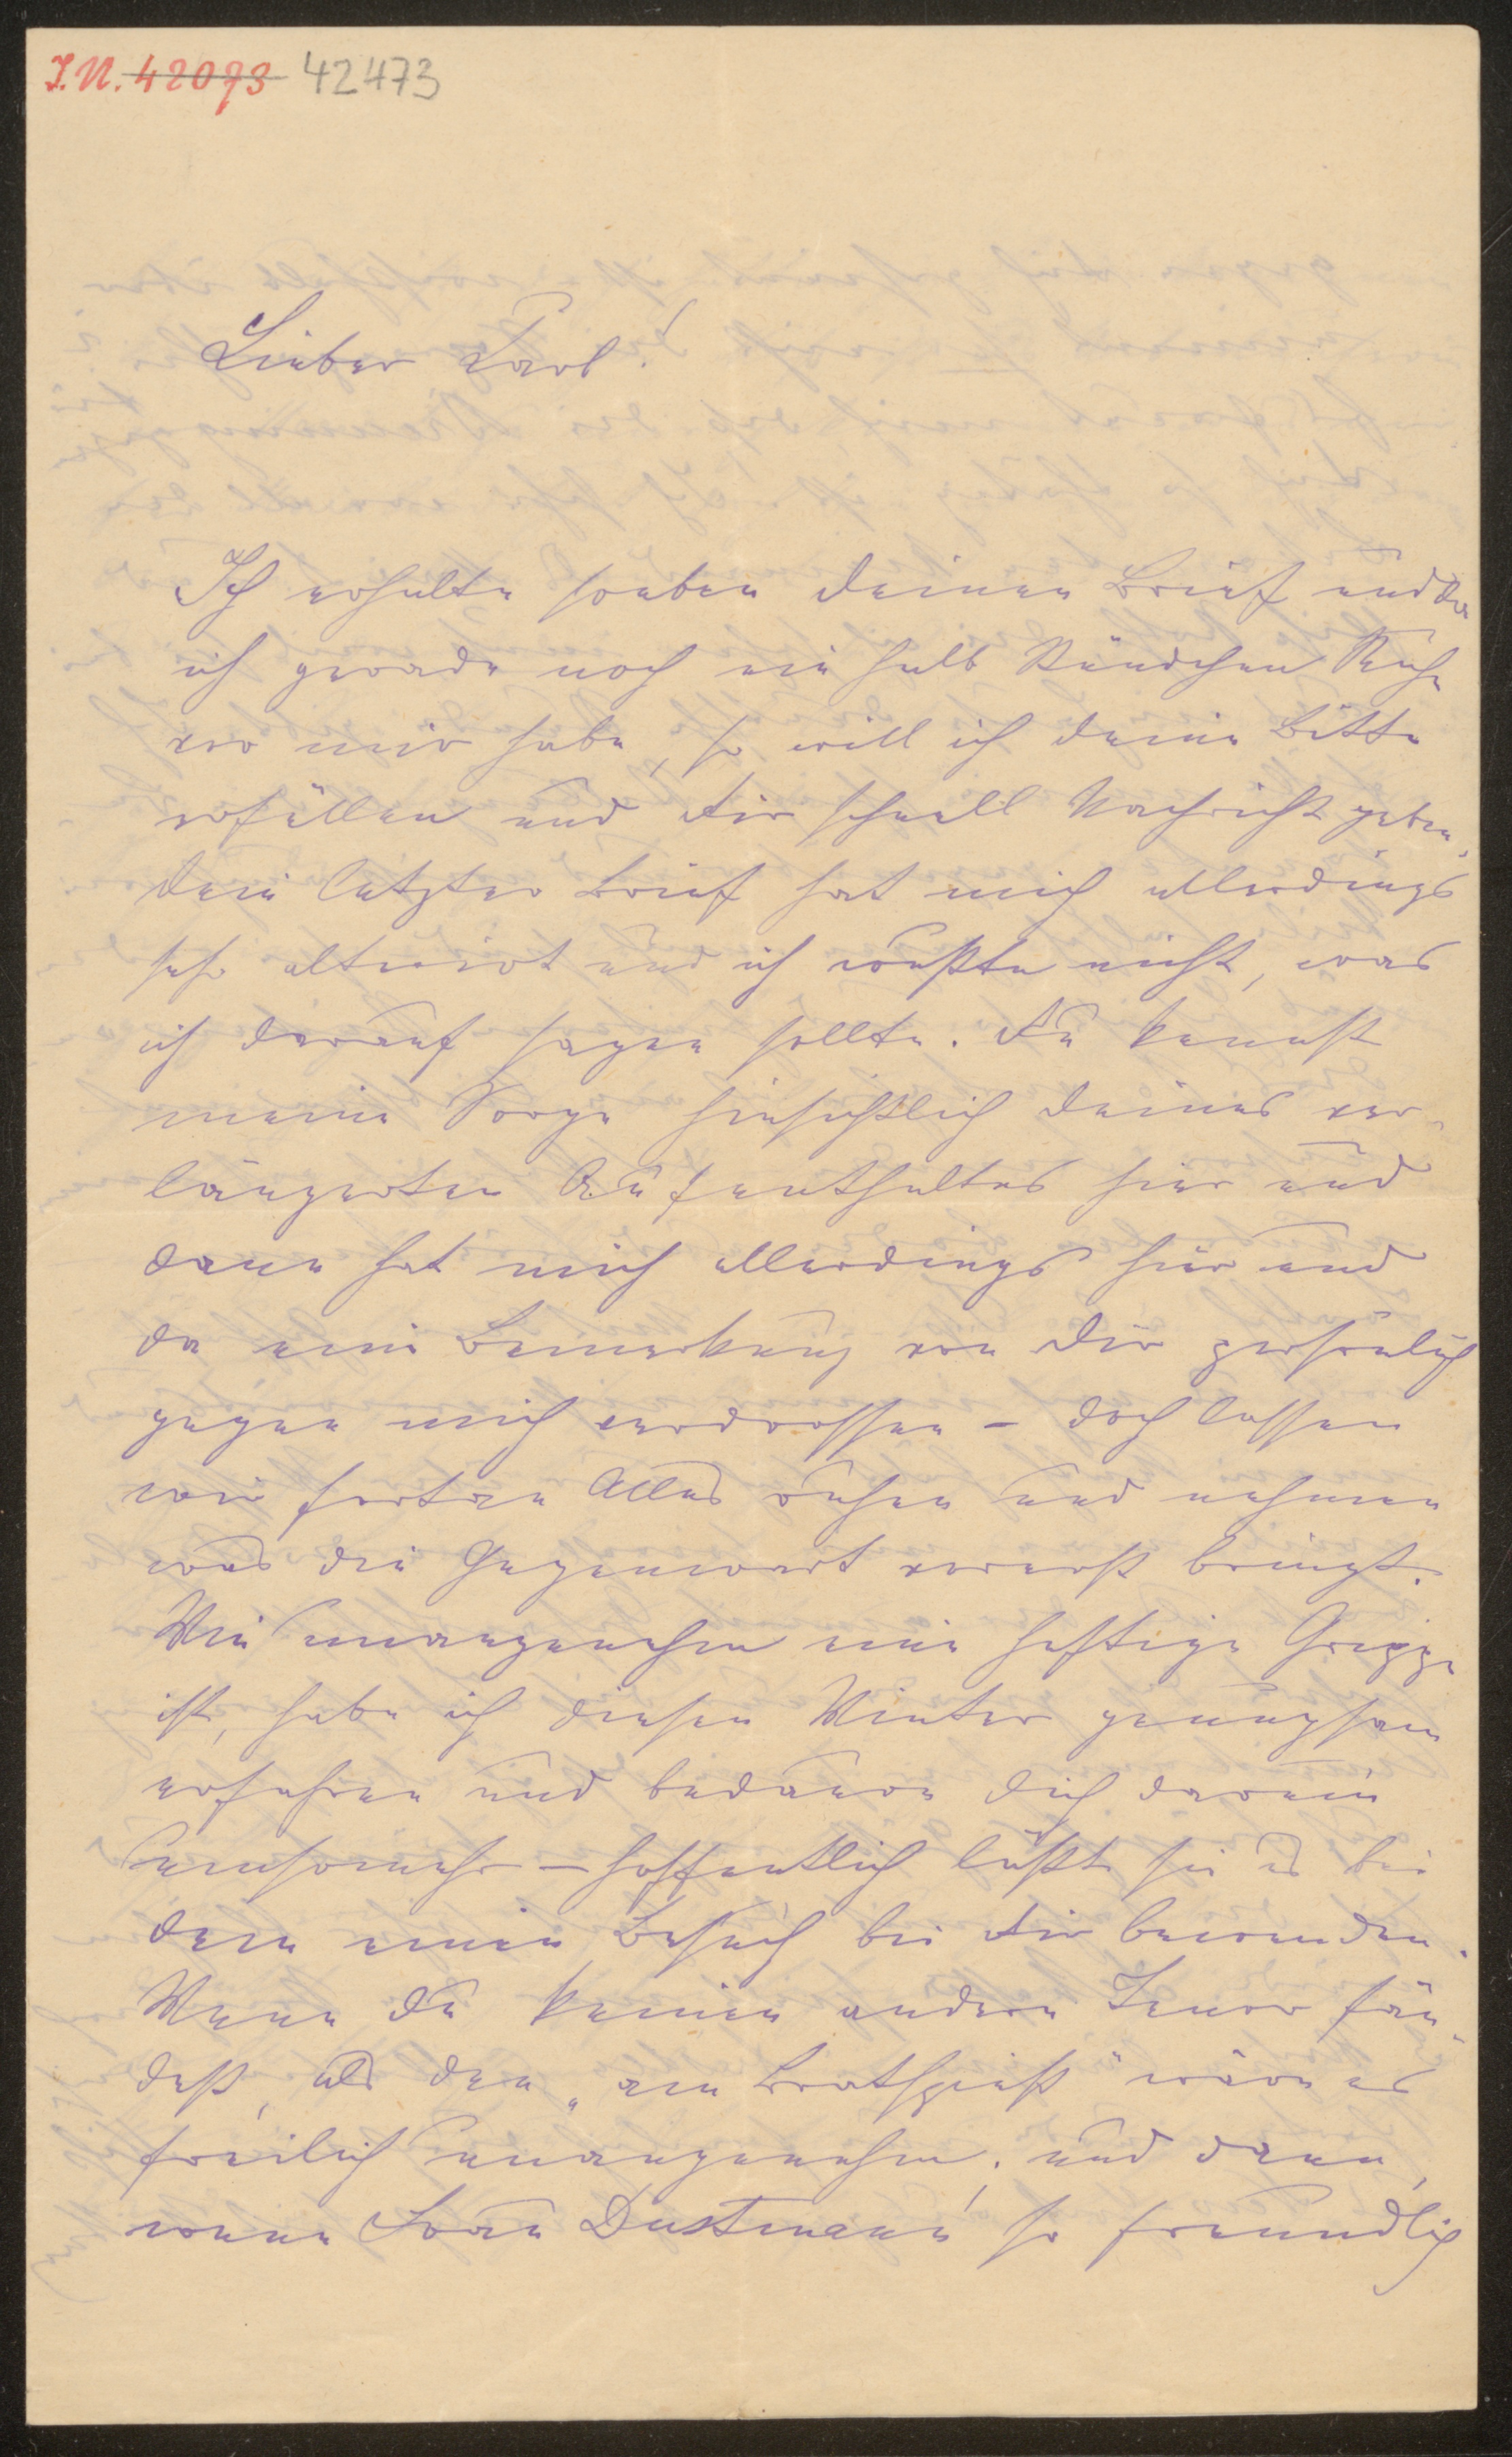 I.N. 42073 42473
Lieber Carl!
Ich erhalte soeben Deinen Brief und da
ich gerade noch ein halb Stündchen Ruhe
vor mir habe, so will ich Deine Bitte
erfüllen und Dir schnell Nachricht geben.
Dein letzter Brief hat mich allerdings
sehr alterirt und ich wußte nicht, was
ich darauf sagen sollte. Du kennst
meine Sorge hinsichtlich Deines ver-
längerten Aufenthaltes hier und
dann hat mich allerdings hier und
da eine Bemerkung von Dir persönlich
gegen mich verdrossen – doch lassen
wir fortan Alles ruhen und nehmen
was die Gegenwart vorerst bringt.
Wie unangenehm eine heftige Grippe
ist, habe ich diesen Winter genugsam
erfahren und bedaure Dich darum
umsomehr – hoffentlich läßt sie es bei
dem einen Besuch bei Dir bewenden.
Wenn Du keinen andern Tenor fän-
dest, als den „am Bratspieß" wäre es
freilich unangenehm, und dann,
wenn Frau Dustmann so freundlich